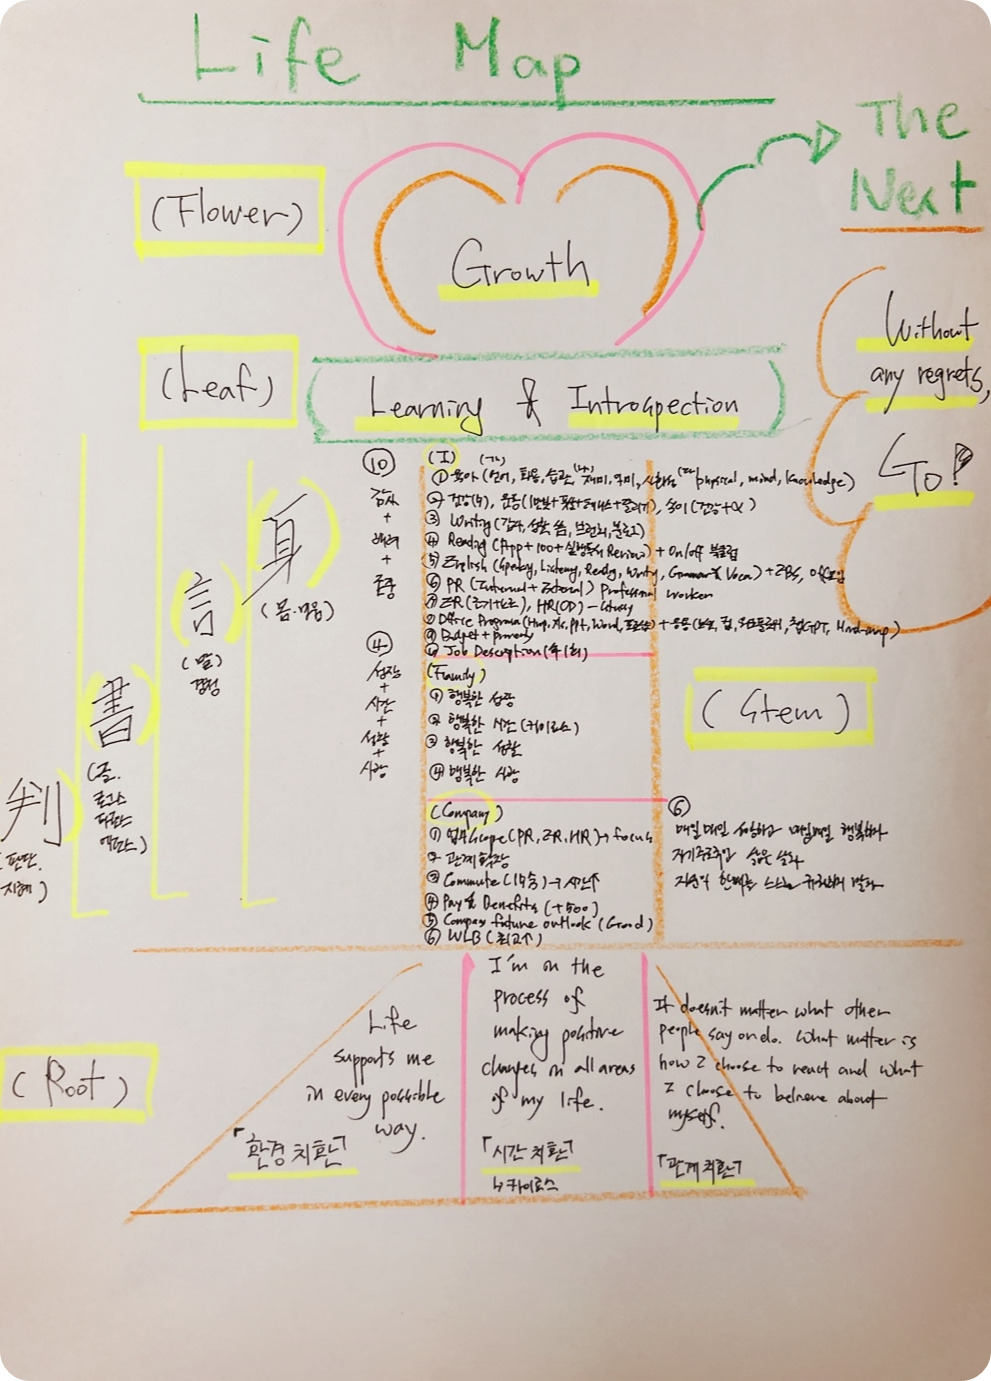 Life Map
The
Next
(Flower)
Growth
Without
any regrets,
GO!
(Leaf)
Learning & Introspection
身
(몸·마음)
言
(말)
書
(글.
로고스
파토스
에토스)
判
(판단.
지혜)
⑩
감사
+
배려
+
존중
④
성장
+
시간
+
성찰
+
사랑
(I)
① 육아 (언어, 포용, 습관, 재미, 의미, physical, mind, knowledge)
② 건강(식), 운동
③ Writing (감사, 성찰
④ Reading (App + 100 + 실행독서 Review) + On/off 북클럽
⑤ English (Speaking, Listening, Reading, Writing, Grammar & Voca) + EBS,
⑥ PR (Internal + External) Professional worker
⑦ ER HR(OD) - study
⑧ Office Program (Hwp, xls, ppt, Word, 챗GPT, Mind-map)
⑨ Budget +
⑩ Job Description (年1회)
(Family)
① 행복한 성장
② 행복한 시간 (카이로스)
③ 행복한 성찰
④ 행복한 사랑
(Stem)
(Company)
① 업무 Scope (PR, ER, HR) → focus
② 관계 확장
③ Commute
④ Pay & Benefits (+500)
⑤ Company future outlook (Good)
⑥ WLB (최고↑)
⑥
매일매일 성장하고 매일매일 행복하라
자기주도적인 삶을 살라
(Root)
Life
supports me
in every possible
way.
「환경 치환」
I'm on the
process of
making positive
changes in all areas
of my life.
「시간 치환」
↳ 카이로스
It doesn't matter what other
people say or do. What matter is
how I choose to react and what
I choose to believe about
myself.
「관계 치환」